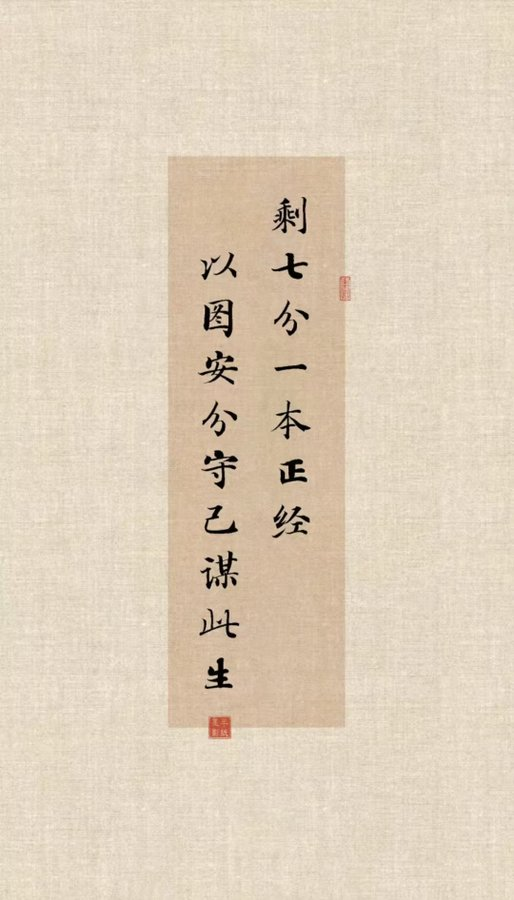 剩七分一本正经
以图安分守己谋此生